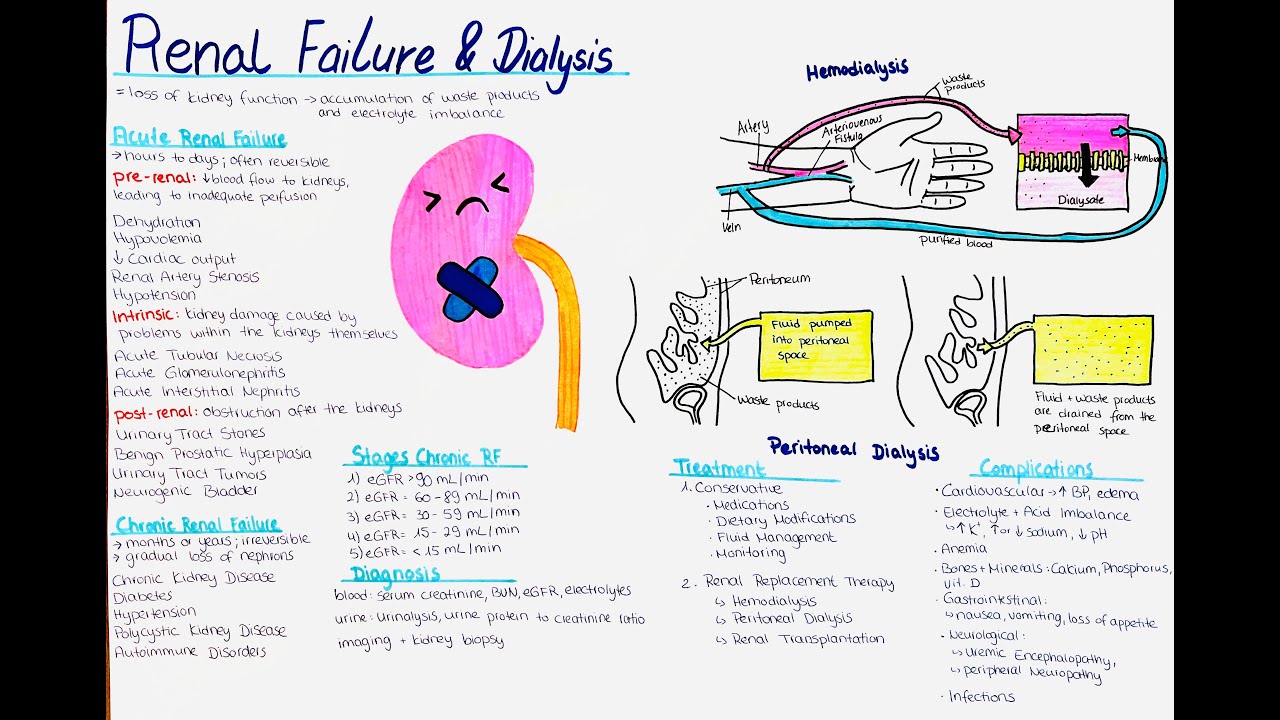 Renal Failure & Dialysis
= loss of kidney function → accumulation of waste products
and electrolyte imbalance
Acute Renal Failure
→ hours to days; often reversible
pre-renal: ↓blood flow to kidneys,
leading to inadequate perfusion
Dehydration
Hypovolemia
↓ Cardiac output
Renal Artery Stenosis
Hypotension
Intrinsic: kidney damage caused by
problems within the kidneys themselves
Acute Tubular Necrosis
Acute Glomerulonephritis
Acute Interstitial Nephritis
post-renal: obstruction after the kidneys
Urinary Tract Stones
Benign Prostatic Hyperplasia
Urinary Tract Tumors
Neurogenic Bladder
Chronic Renal Failure
→ months or years; irreversible
→ gradual loss of nephrons
Chronic Kidney Disease
Diabetes
Hypertension
Polycystic Kidney Disease
Autoimmune Disorders
Stages Chronic RF
1) eGFR >90 mL/min
2) eGFR = 60-89 mL/min
3) eGFR = 30-59 mL/min
4) eGFR = 15-29 mL/min
5) eGFR = <15 mL/min
Diagnosis
blood: serum creatinine, BUN, eGFR, electrolytes
urine: urinalysis, urine protein to creatinine ratio
imaging + kidney biopsy
Hemodialysis
Waste
products
Artery
Arteriovenous
Fistula
Membrane
Dialysate
Vein
purified blood
Peritoneum
Fluid pumped
into peritoneal
space
Waste products
Fluid + waste products
are drained from the
peritoneal space
Peritoneal Dialysis
Treatment
1. Conservative
• Medications
• Dietary Modifications
• Fluid Management
• Monitoring
2. Renal Replacement Therapy
↳ Hemodialysis
↳ Peritoneal Dialysis
↳ Renal Transplantation
Complications
• Cardiovascular → ↑ BP, edema
• Electrolyte + Acid Imbalance
↳ ↑ K⁺, ↑ or ↓ sodium, ↓ pH
• Anemia
• Bones + Minerals: Calcium, Phosphorus,
vit. D
• Gastrointestinal:
↳ nausea, vomiting, loss of appetite
• Neurological:
↳ Uremic Encephalopathy,
↳ peripheral Neuropathy
• Infections